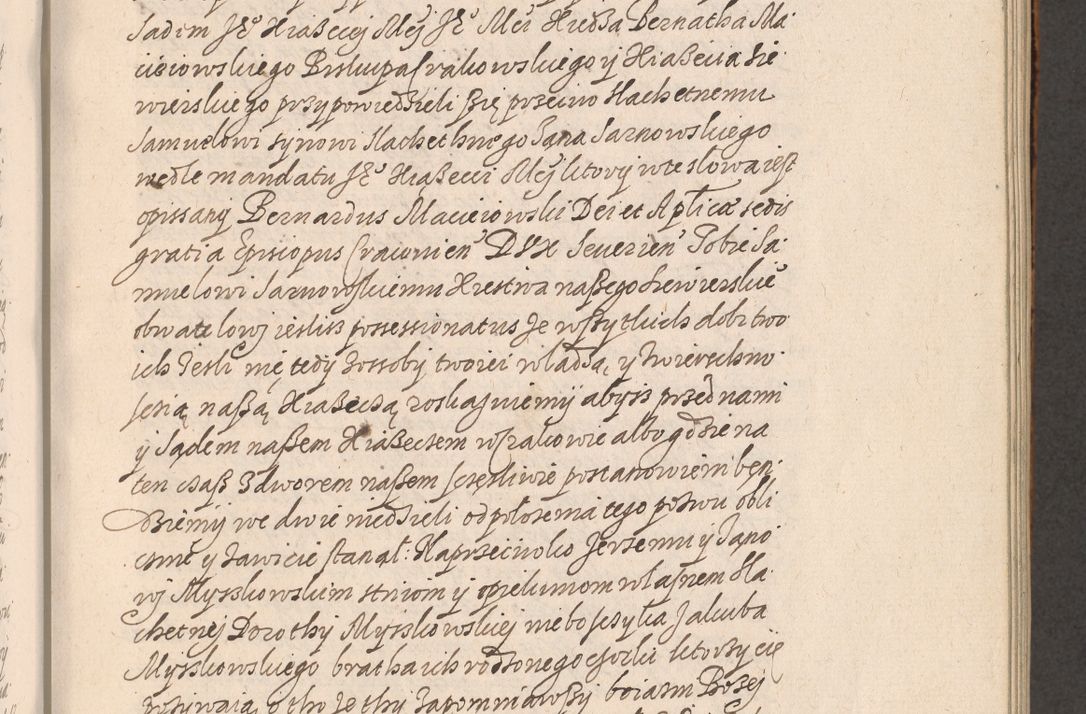 Sądem Je° Xiażęcej Mej Je° Mci Xiedza Bernatha Ma
cieiowskiego Biskupa Crakowskiego y Xiażecia Sie
wierskiego przypowiedzieli się przeciwo slachetnemu
Samuelowi synowi slachethnego Jana Sarnowskiego
wedle mandatu Je° Xiażecei Mej ktory w te słowa iest
opissany Bernardus Macieiowski Dei et Aplicæ sedis
gratia Episcopus Cracovien DVX Severien Tobie Sa
muelowi Sarnowskiemu Xiestwa naszego Siewierskie°
obwatelowj iesliss possessionatus ze wszytkich dobr two
ich Jesli nię tedy z ossoby twoiei władzą y zwierzchno
scią naszą Xiażeczą roskazuiemy abyss przed nami
y sądem naszem Xiażeczem w Crakowie albo gdzie na
ten czasz z dworem naszem sczęsliwie postanowiem bęn
dziemy we dwie niedzieli od położenia tego pozwu obli
cznie y zawicie stanął: Naprzeciwko Jerzemu y Jano
wj Myszkowskim striom y opiekunom własnem sla
chetnej Dorothy Myszkowskiej niebosczyka Jakuba
Myszkowskiego bratha ich rodzonego czorki ktorzy cię
pozywaią o tho że thy zapomniawszy boiazni Bożej